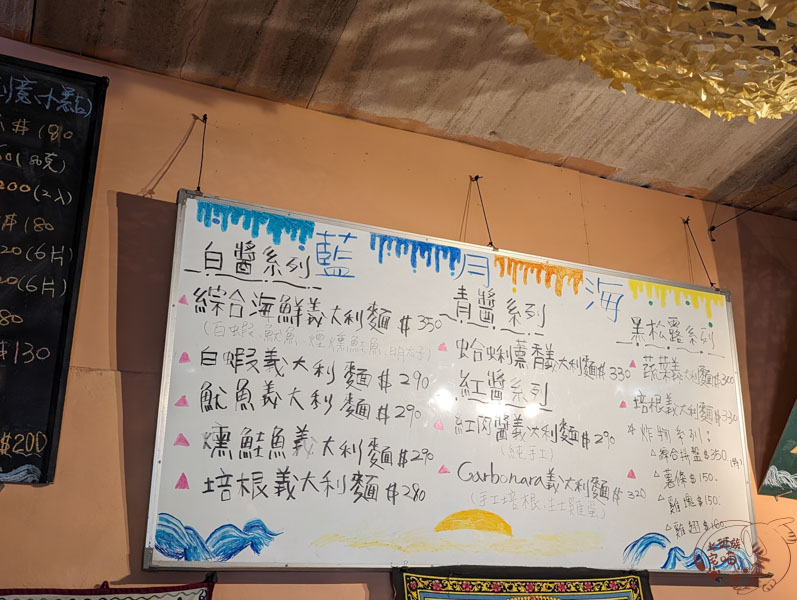 創意小點
$180
(80克)
200(2入)
$180
20(6片)
20(6片)
80
$130
$200
藍月海
白醬系列
綜合海鮮義大利麵 $350
(白蝦、魷魚、煙燻鮭魚、明太子)
白蝦義大利麵 $290
魷魚義大利麵 $290
燻鮭魚義大利麵 $290
培根義大利麵 $280
青醬系列
蛤蜊蕈香義大利麵 $330
紅醬系列
紅肉醬義大利麵 $290
(純手工)
Carbonara義大利麵 $320
(手工培根、土雞蛋)
黑松露系列
蔬菜義大利麵 $300
培根義大利麵 $330
炸物系列:
綜合拼盤 $350
薯條 $150.
雞塊 $150.
雞翅